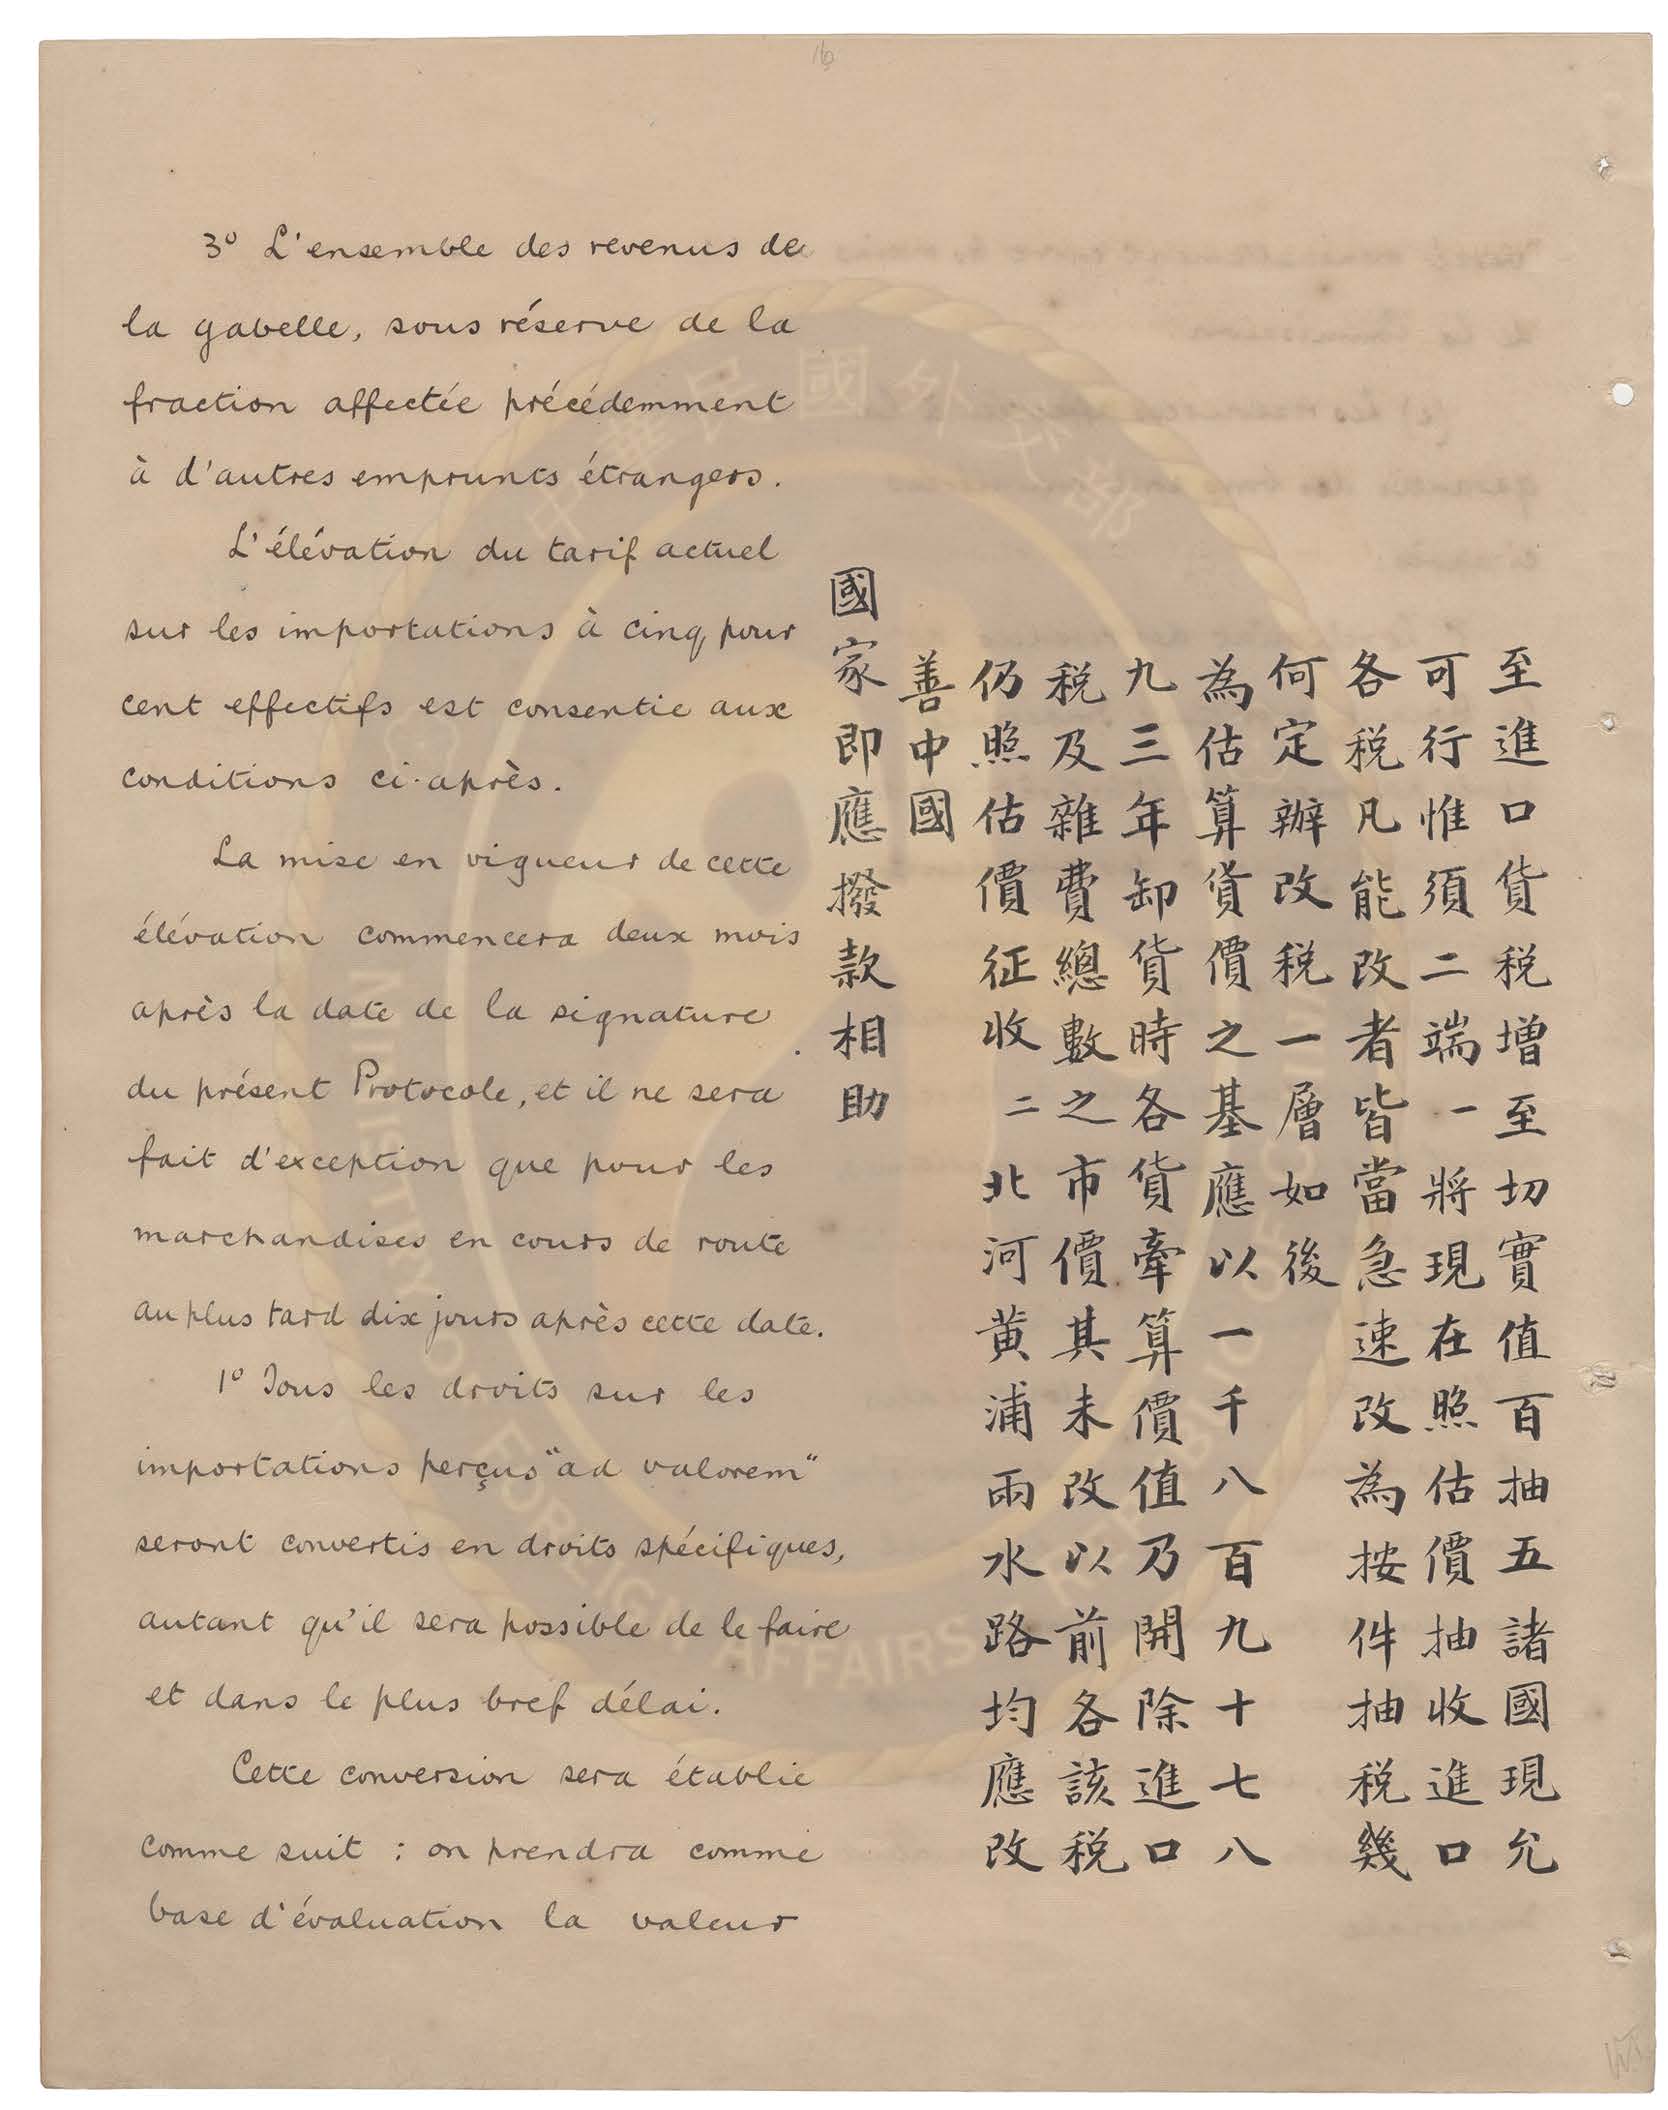 3º L'ensemble des revenus de
la gabelle, sous réserve de la
fraction affectée précédemment
à d'autres emprunts étrangers.
L'élévation du tarif actuel
sur les importations à cinq pour
cent effectifs est consentie aux
conditions ci-après.
La mise en vigueur de cette
élévation commencera deux mois
après la date de la signature
du présent Protocole, et il ne sera
fait d'exception que pour les
marchandises en cours de route
au plus tard dix jours après cette date.
1º Tous les droits sur les
importations perçus "ad valorem"
seront convertis en droits spécifiques,
autant qu'il sera possible de le faire
et dans le plus bref délai.
Cette conversion sera établie
comme suit : on prendra comme
base d'évaluation la valeur
至進口貨税增至切實值百抽五諸國現允
可行惟須二端一將現在照估價抽收進口
各税凡能改者皆當急速改為按件抽税幾
何定辦改税一層如後
為估算貨價之基應以一千八百九十七八
九三年卸貨時各貨牽算價值乃開除進口
税及雜費總數之市價其未改以前各該税
仍照估價征收二北河黄浦兩水路均應改
善中國
國家即應撥款相助
中華民國外交部
MINISTRY OF FOREIGN AFFAIRS